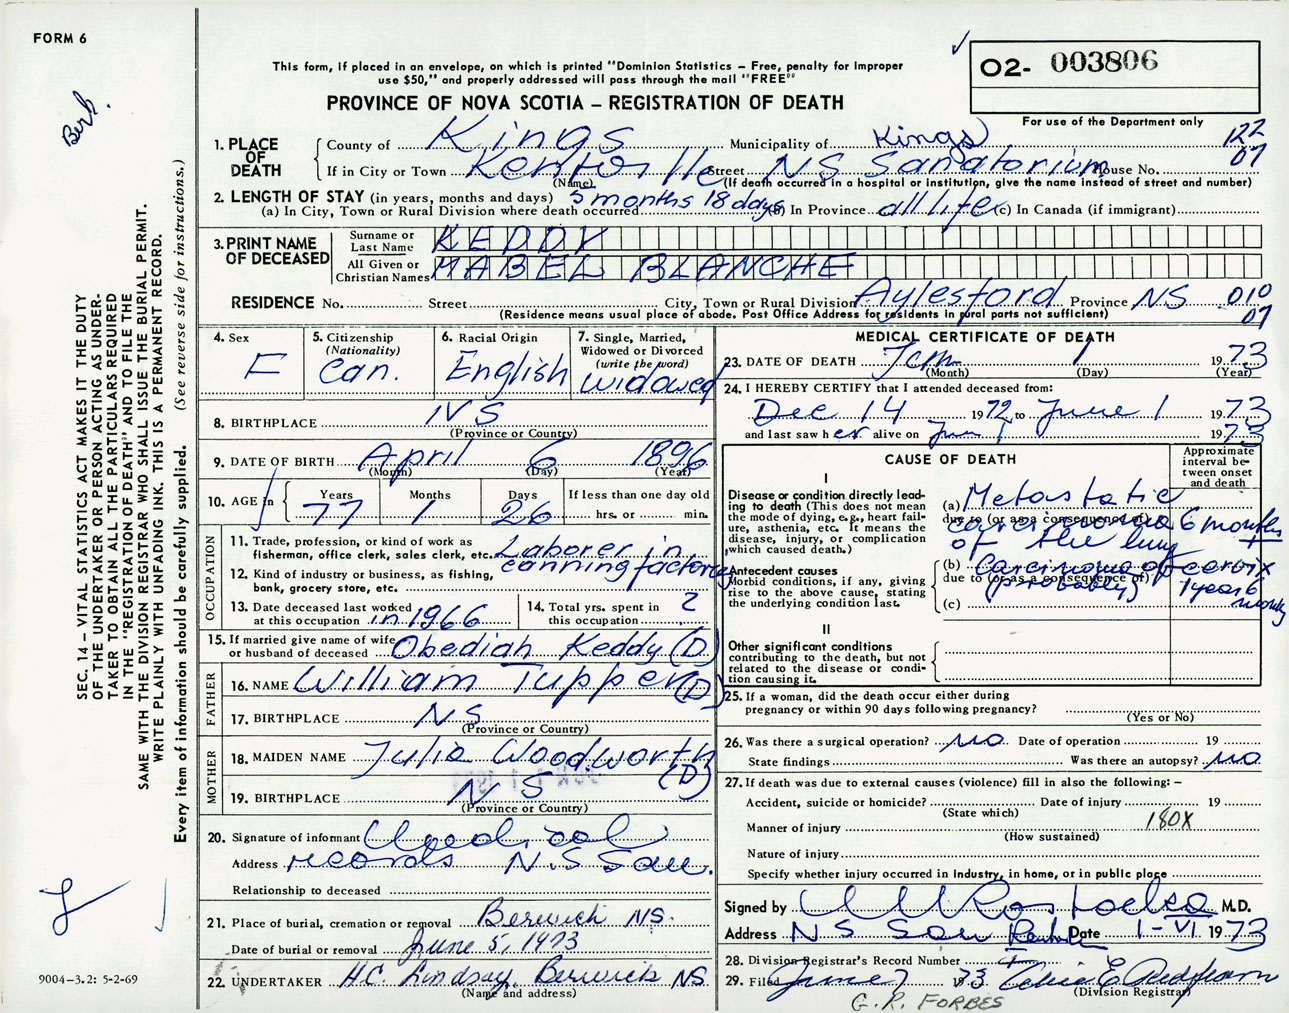 FORM 6
This form, if placed in an envelope, on which is printed "Dominion Statistics – Free, penalty for improper
use $50," and properly addressed will pass through the mail "FREE"
O2- 003806
For use of the Department only
PROVINCE OF NOVA SCOTIA – REGISTRATION OF DEATH
Berk.
SEC. 14 – VITAL STATISTICS ACT MAKES IT THE DUTY
OF THE UNDERTAKER OR PERSON ACTING AS UNDER-
TAKER TO OBTAIN ALL THE PARTICULARS REQUIRED
IN THE "REGISTRATION OF DEATH" AND TO FILE THE
SAME WITH THE DIVISION REGISTRAR WHO SHALL ISSUE THE BURIAL PERMIT.
WRITE PLAINLY WITH UNFADING INK. THIS IS A PERMANENT RECORD.
Every item of information should be carefully supplied. (See reverse side for instructions.)
9004–3.2: 5-2-69
1. PLACE OF DEATH
County of Kings Municipality of Kings 122
If in City or Town Kentville Street NS Sanatorium House No. 07
(Name) (If death occurred in a hospital or institution, give the name instead of street and number)
2. LENGTH OF STAY (in years, months and days)
(a) In City, Town or Rural Division where death occurred 5 months 18 days (b) In Province all life (c) In Canada (if immigrant)
3. PRINT NAME OF DECEASED
Surname or Last Name KEDDY
All Given or Christian Names MABEL BLANCHE
RESIDENCE No. Street City, Town or Rural Division Aylesford Province NS 010
(Residence means usual place of abode. Post Office Address for residents in rural parts not sufficient) 07
4. Sex F
5. Citizenship (Nationality) Can.
6. Racial Origin English
7. Single, Married, Widowed or Divorced (write the word) widowed
8. BIRTHPLACE NS
(Province or Country)
9. DATE OF BIRTH April 6 1896
(Month) (Day) (Year)
10. AGE in Years 77 Months 1 Days 26 If less than one day old hrs. or min.
OCCUPATION
11. Trade, profession, or kind of work as fisherman, office clerk, sales clerk, etc. Laborer in
12. Kind of industry or business, as fishing, bank, grocery store, etc. canning factory
13. Date deceased last worked at this occupation in 1966
14. Total yrs. spent in this occupation 2
15. If married give name of wife or husband of deceased Obediah Keddy (D)
FATHER
16. NAME William Tupper (D)
17. BIRTHPLACE NS
(Province or Country)
MOTHER
18. MAIDEN NAME Julia Woodworth (D)
19. BIRTHPLACE NS
(Province or Country)
20. Signature of informant Medical
Address records N.S San.
Relationship to deceased
21. Place of burial, cremation or removal Berwick NS.
Date of burial or removal June 5, 1973
22. UNDERTAKER H.C. Lindsay, Berwick NS
(Name and address)
MEDICAL CERTIFICATE OF DEATH
23. DATE OF DEATH June 1 1973
(Month) (Day) (Year)
24. I HEREBY CERTIFY that I attended deceased from:
Dec 14 1972 to June 1 1973
and last saw her alive on June 1 1973
CAUSE OF DEATH
Approximate interval between onset and death
I
Disease or condition directly lead-
ing to death (This does not mean
the mode of dying, e.g., heart fail-
ure, asthenia, etc. It means the
disease, injury, or complication
which caused death.)
(a) Metastatic
due to (or as a consequence of)
carcinoma 6 months +
of the lung
Antecedent causes
Morbid conditions, if any, giving
rise to the above cause, stating
the underlying condition last.
(b) Carcinoma of cervix
due to (or as a consequence of)
(probably) 1 year 6 months
(c)
II
Other significant conditions
contributing to the death, but not
related to the disease or condi-
tion causing it.
25. If a woman, did the death occur either during
pregnancy or within 90 days following pregnancy?
(Yes or No)
26. Was there a surgical operation? no Date of operation 19
State findings Was there an autopsy? no
27. If death was due to external causes (violence) fill in also the following: –
Accident, suicide or homicide? Date of injury 19
(State which)
Manner of injury 180X
(How sustained)
Nature of injury
Specify whether injury occurred in industry, in home, or in public place
Signed by M.D.
Address N S San Kentville Date 1-VI 1973
28. Division Registrar's Record Number
29. Filed June 7 1973
(Division Registrar)
G. R. FORBES